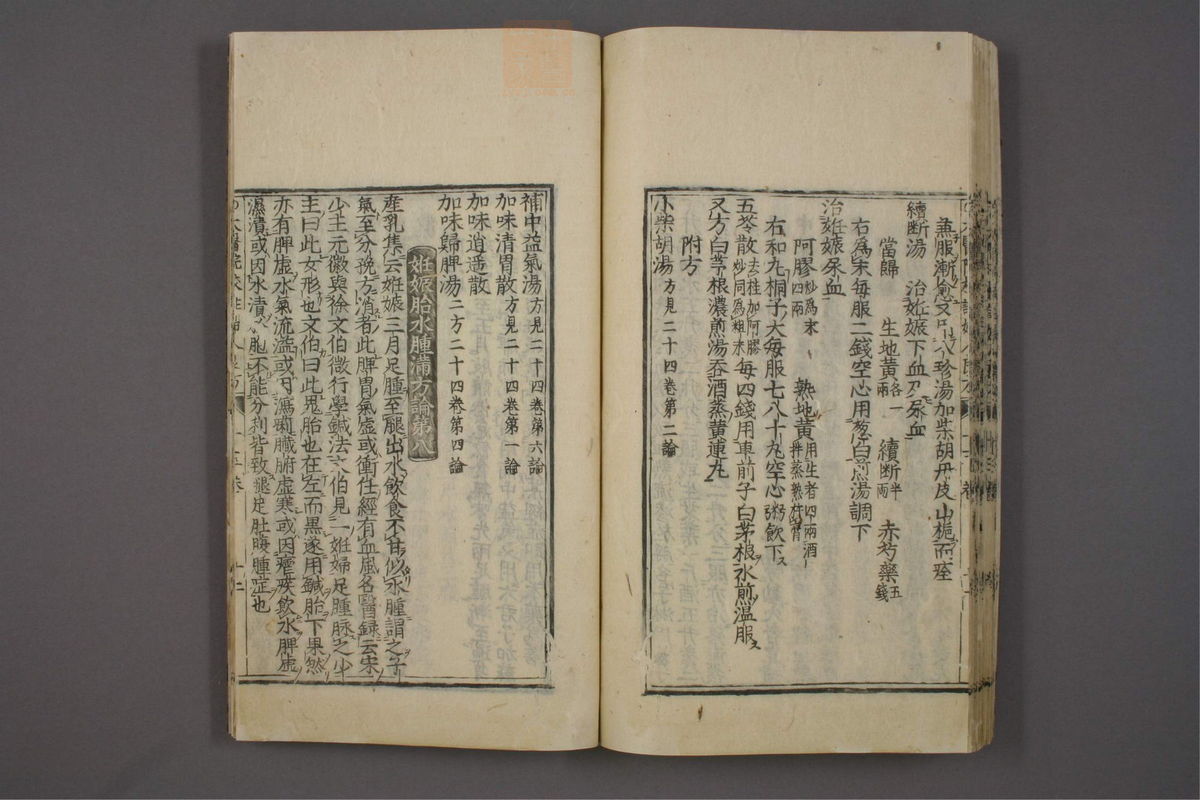 兼服漸愈又以八珍湯加柴胡丹皮山梔而痊
續斷湯　治姙娠下血及尿血
當歸　生地黃各一兩　續斷半兩　赤芍藥五錢
右爲末每服二錢空心用葱白煎湯調下
治姙娠尿血
阿膠炒爲末四兩　熟地黃用生者四兩酒拌蒸熟杵膏
右和丸桐子大每服七八十丸空心粥飲下
五苓散去桂加阿膠炒同爲粗末每四錢用車前子白茅根水煎温服
又方白茅根濃煎湯吞酒蒸黄連丸
附方
小柴胡湯方見二十四卷第二論
補中益氣湯方見二十四卷第六論
加味清胃散方見二十四卷第一論
加味逍遥散
加味歸脾湯二方二十四卷第四論
姙娠胎水腫滿方論第八
産乳集云姙娠三月足腫至腿出水飲食不甘似水腫謂之子
氣至分娩方消者此脾胃氣虛或衝任經有血風各醫録云宋
少主元徽與徐文伯微行學鍼法文伯見一姙婦足腫脉之少
主曰此女形也文伯曰此鬼胎也在左而黒遂用鍼胎下果然
亦有脾虛水氣流溢或因瀉痢臟腑虛寒或因瘧疾飲水脾虛
濕漬或因水漬於胞不能分利皆致腿足肚腹腫症也